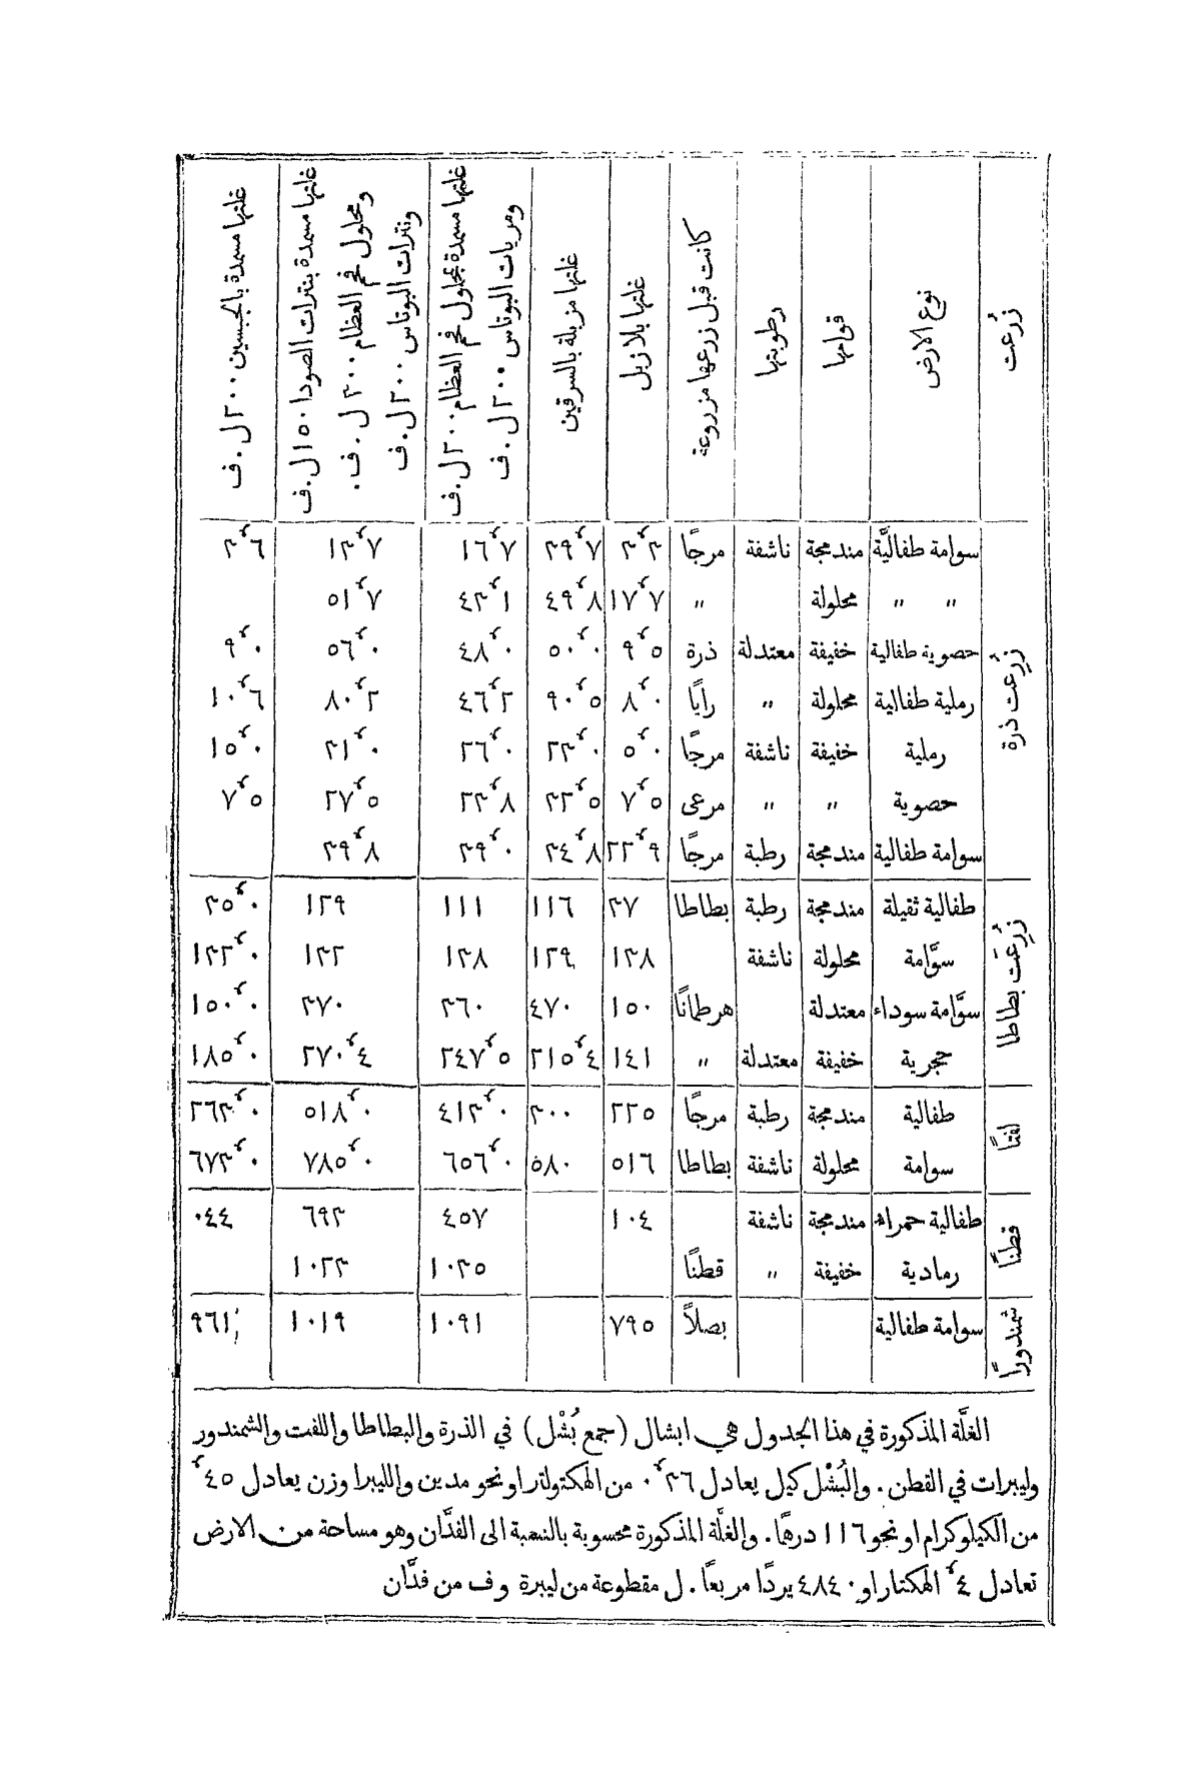 زُرعت | نوع الارض | قوامها | رطوبتها | كانت قبل زرعها مزروعة | غلتها بلا زبل | غلتها مزبلة بالسرقين | غلتها مسمدة بمحلول فحم العظام ٢٠٠ ل.ف ومريات البوتاس ٢٠٠ ل.ف | غلتها مسمدة بنترات الصودا ١٥٠ ل.ف ومحلول فحم العظام ٣٠٠ ل.ف. ونترات البوتاس ٢٠٠ ل.ف | غلتها مسمدة بالجبسين ٢٠٠ ل.ف
زُرعت ذرة
سوامة طفاليَّة | مندمجة | ناشفة | مرجًا | ٣٫٣ | ٣٩٫٧ | ١٦٫٧ | ١٣٫٧ | ٣٫٦
〃 〃 | محلولة | | 〃 | ١٧٫٧ | ٤٩٫٨ | ٤٣٫١ | ٥١٫٧
حصوية طفالية | خفيفة | معتدلة | ذرة | ٩٫٥ | ٥٠٫٠ | ٤٨٫٠ | ٥٦٫٠ | ٩٫٠
رملية طفالية | محلولة | 〃 | رايًا | ٨٫٠ | ٩٠٫٥ | ٤٦٫٢ | ٨٠٫٢ | ١٠٫٦
رملية | خفيفة | ناشفة | مرجًا | ٥٫٠ | ٢٣٫٠ | ٢٦٫٠ | ٣١٫٠ | ١٥٫٠
حصوية | 〃 | 〃 | مرعى | ٧٫٥ | ٢٣٫٥ | ٢٣٫٨ | ٢٧٫٥ | ٧٫٥
سوامة طفالية | مندمجة | رطبة | مرجًا | ٢٣٫٩ | ٣٤٫٨ | ٣٩٫٠ | ٣٩٫٨
زُرعَت بطاطا
طفالية ثقيلة | مندمجة | رطبة | بطاطا | ٣٧ | ١١٦ | ١١١ | ١٢٩ | ٣٥٫٠
سوَّامة | محلولة | ناشفة | | ١٣٨ | ١٢٩ | ١٣٨ | ١٣٢ | ١٣٢٫٠
سوَّامة سوداء | معتدلة | | هرطمانًا | ١٥٠ | ٤٧٠ | ٣٦٠ | ٣٧٠ | ١٥٠٫٠
حجرية | خفيفة | معتدلة | 〃 | ١٤١ | ٢١٥٫٤ | ٢٤٧٫٥ | ٢٧٠٫٤ | ١٨٥٫٠
لفتًا
طفالية | مندمجة | رطبة | مرجًا | ٢٢٥ | ٣٠٠ | ٤١٣٫٠ | ٥١٨٫٠ | ٢٦٣٫٠
سوامة | محلولة | ناشفة | بطاطا | ٥١٦ | ٥٨٠ | ٦٥٦٫٠ | ٧٨٥٫٠ | ٦٧٣٫٠
قطنًا
طفالية حمراء | مندمجة | ناشفة | | ١٠٤ | | ٤٥٧ | ٦٩٣ | ٠٤٤
رمادية | خفيفة | 〃 | قطنًا | | | ١٠٣٥ | ١٠٢٣
شمندورًا
سوامة طفالية | | | بصلاً | ٧٩٥ | | ١٠٩١ | ١٠١٩ | ٩٦١
الغلَّة المذكورة في هذا الجدول هي ابشال (جمع بُشْل) في الذرة والبطاطا واللفت والشمندور
وليبرات في القطن. والبُشْل كيل يعادل ٠٫٣٦ من الهكتولتر او نحو مدين والليبرا وزن يعادل ٤٥٫
من الكيلوكرام او نحو ١١٦ درهمًا. والغلَّة المذكورة محسوبة بالنسبة الى الفدَّان وهو مساحة من الارض
تعادل ٤٫ الهكتار او ٤٨٤٠ يردًا مربعًا. ل مقطوعة من ليبرة وف من فدَّان